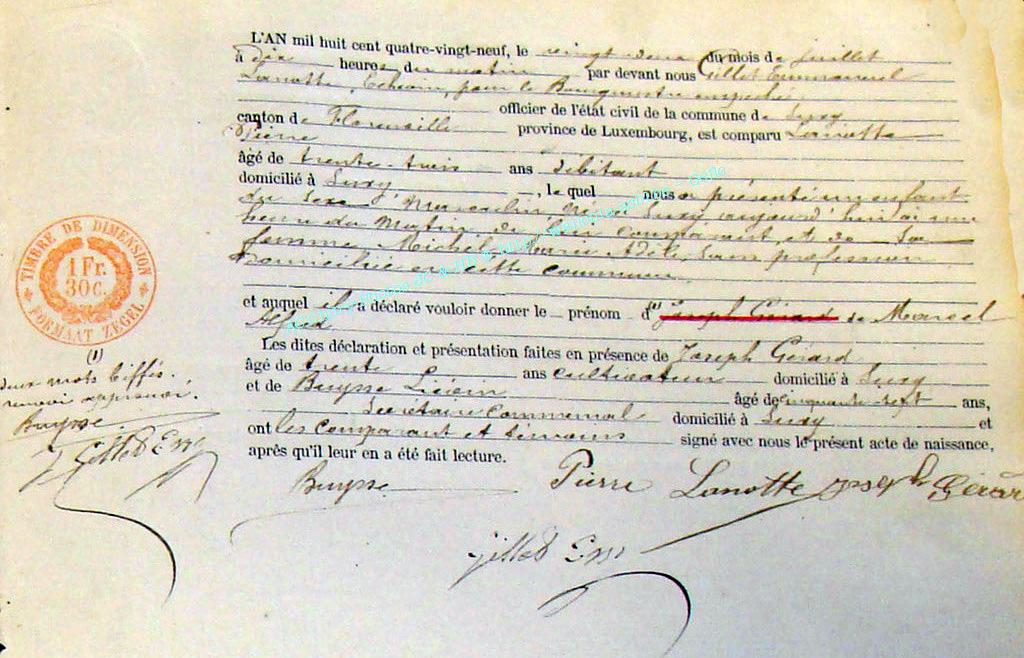 L'AN mil huit cent quatre-vingt-neuf, le vingt deux du mois de juillet
à dix heures du matin par devant nous Gillet Emmanuel
Lanotte, Echevin, pour le Bourgmestre empêché
officier de l'état civil de la commune de Suxy
canton de Florenville province de Luxembourg, est comparu Lanotte
Pierre
âgé de trente-trois ans débitant
domicilié à Suxy, le quel nous a présenté un enfant
du sexe Masculin Né à Suxy aujourd'hui à une
heure du Matin, de lui comparant, et de Sa
femme Michel, Marie Adèle, sans profession
domiciliée en cette commune
et auquel il a déclaré vouloir donner le prénom d (1) Joseph Gérard de Marcel
Alfred
Les dites déclaration et présentation faites en présence de Joseph Gérard
âgé de trente ans cultivateur domicilié à Suxy
et de Buysse âgé de cinquante-sept ans,
Secrétaire communal domicilié à Suxy et
ont les comparant et témoins signé avec nous le présent acte de naissance,
après qu'il leur en a été fait lecture.
Buysse Pierre Lanotte Joseph Gérar
Gillet Em
TIMBRE DE DIMENSION
1 Fr.
30 c.
FORMAAT ZEGEL
(1)
deux mots biffés.
renvoi approuvé.
Buysse
Gillet Em